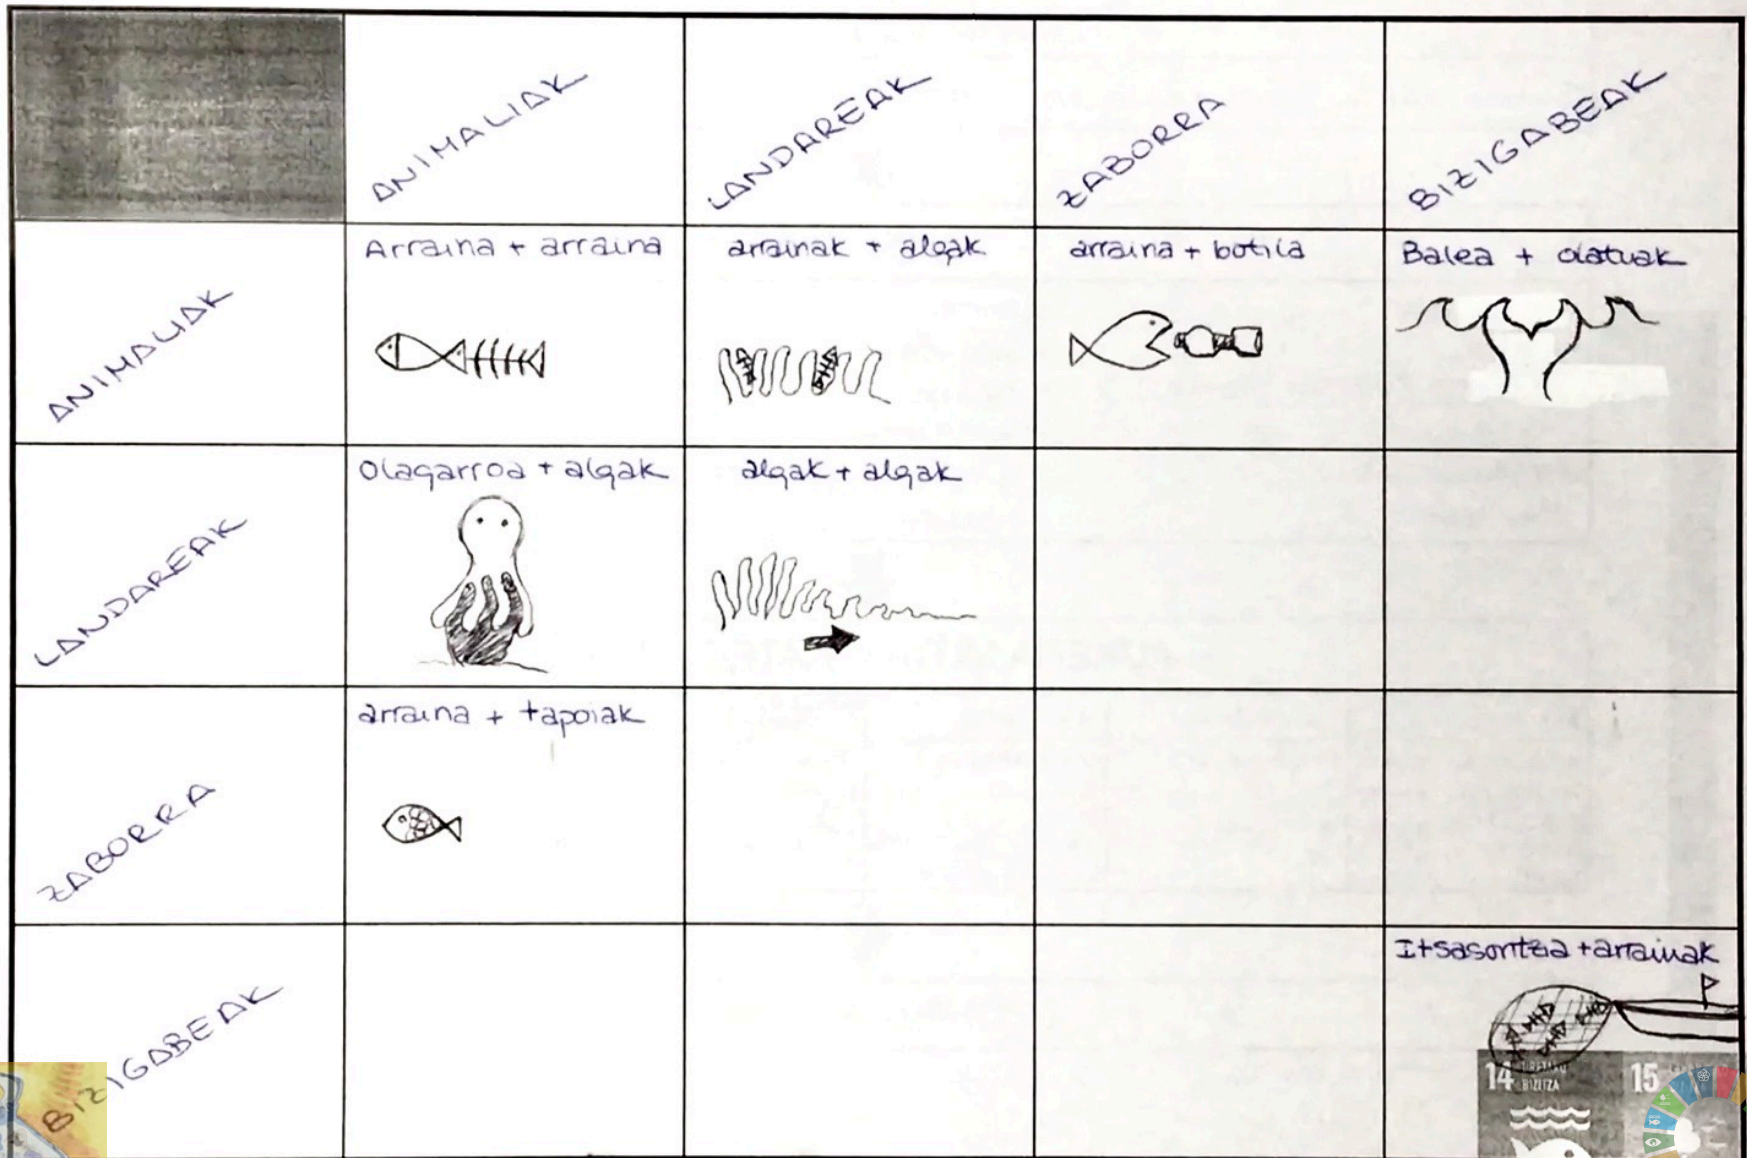 ANIMALIAK LANDAREAK ZABORRA BIZIGABEAK
ANIMALIAK
Arraina + arraina
arrainak + algak
arraina + botila
Balea + olatuak
LANDAREAK
Olagarroa + algak
algak + algak
ZABORRA
arraina + tapoiak
BIZIGABEAK
Itsasontzia + arrainak
14
BIZITZA
15